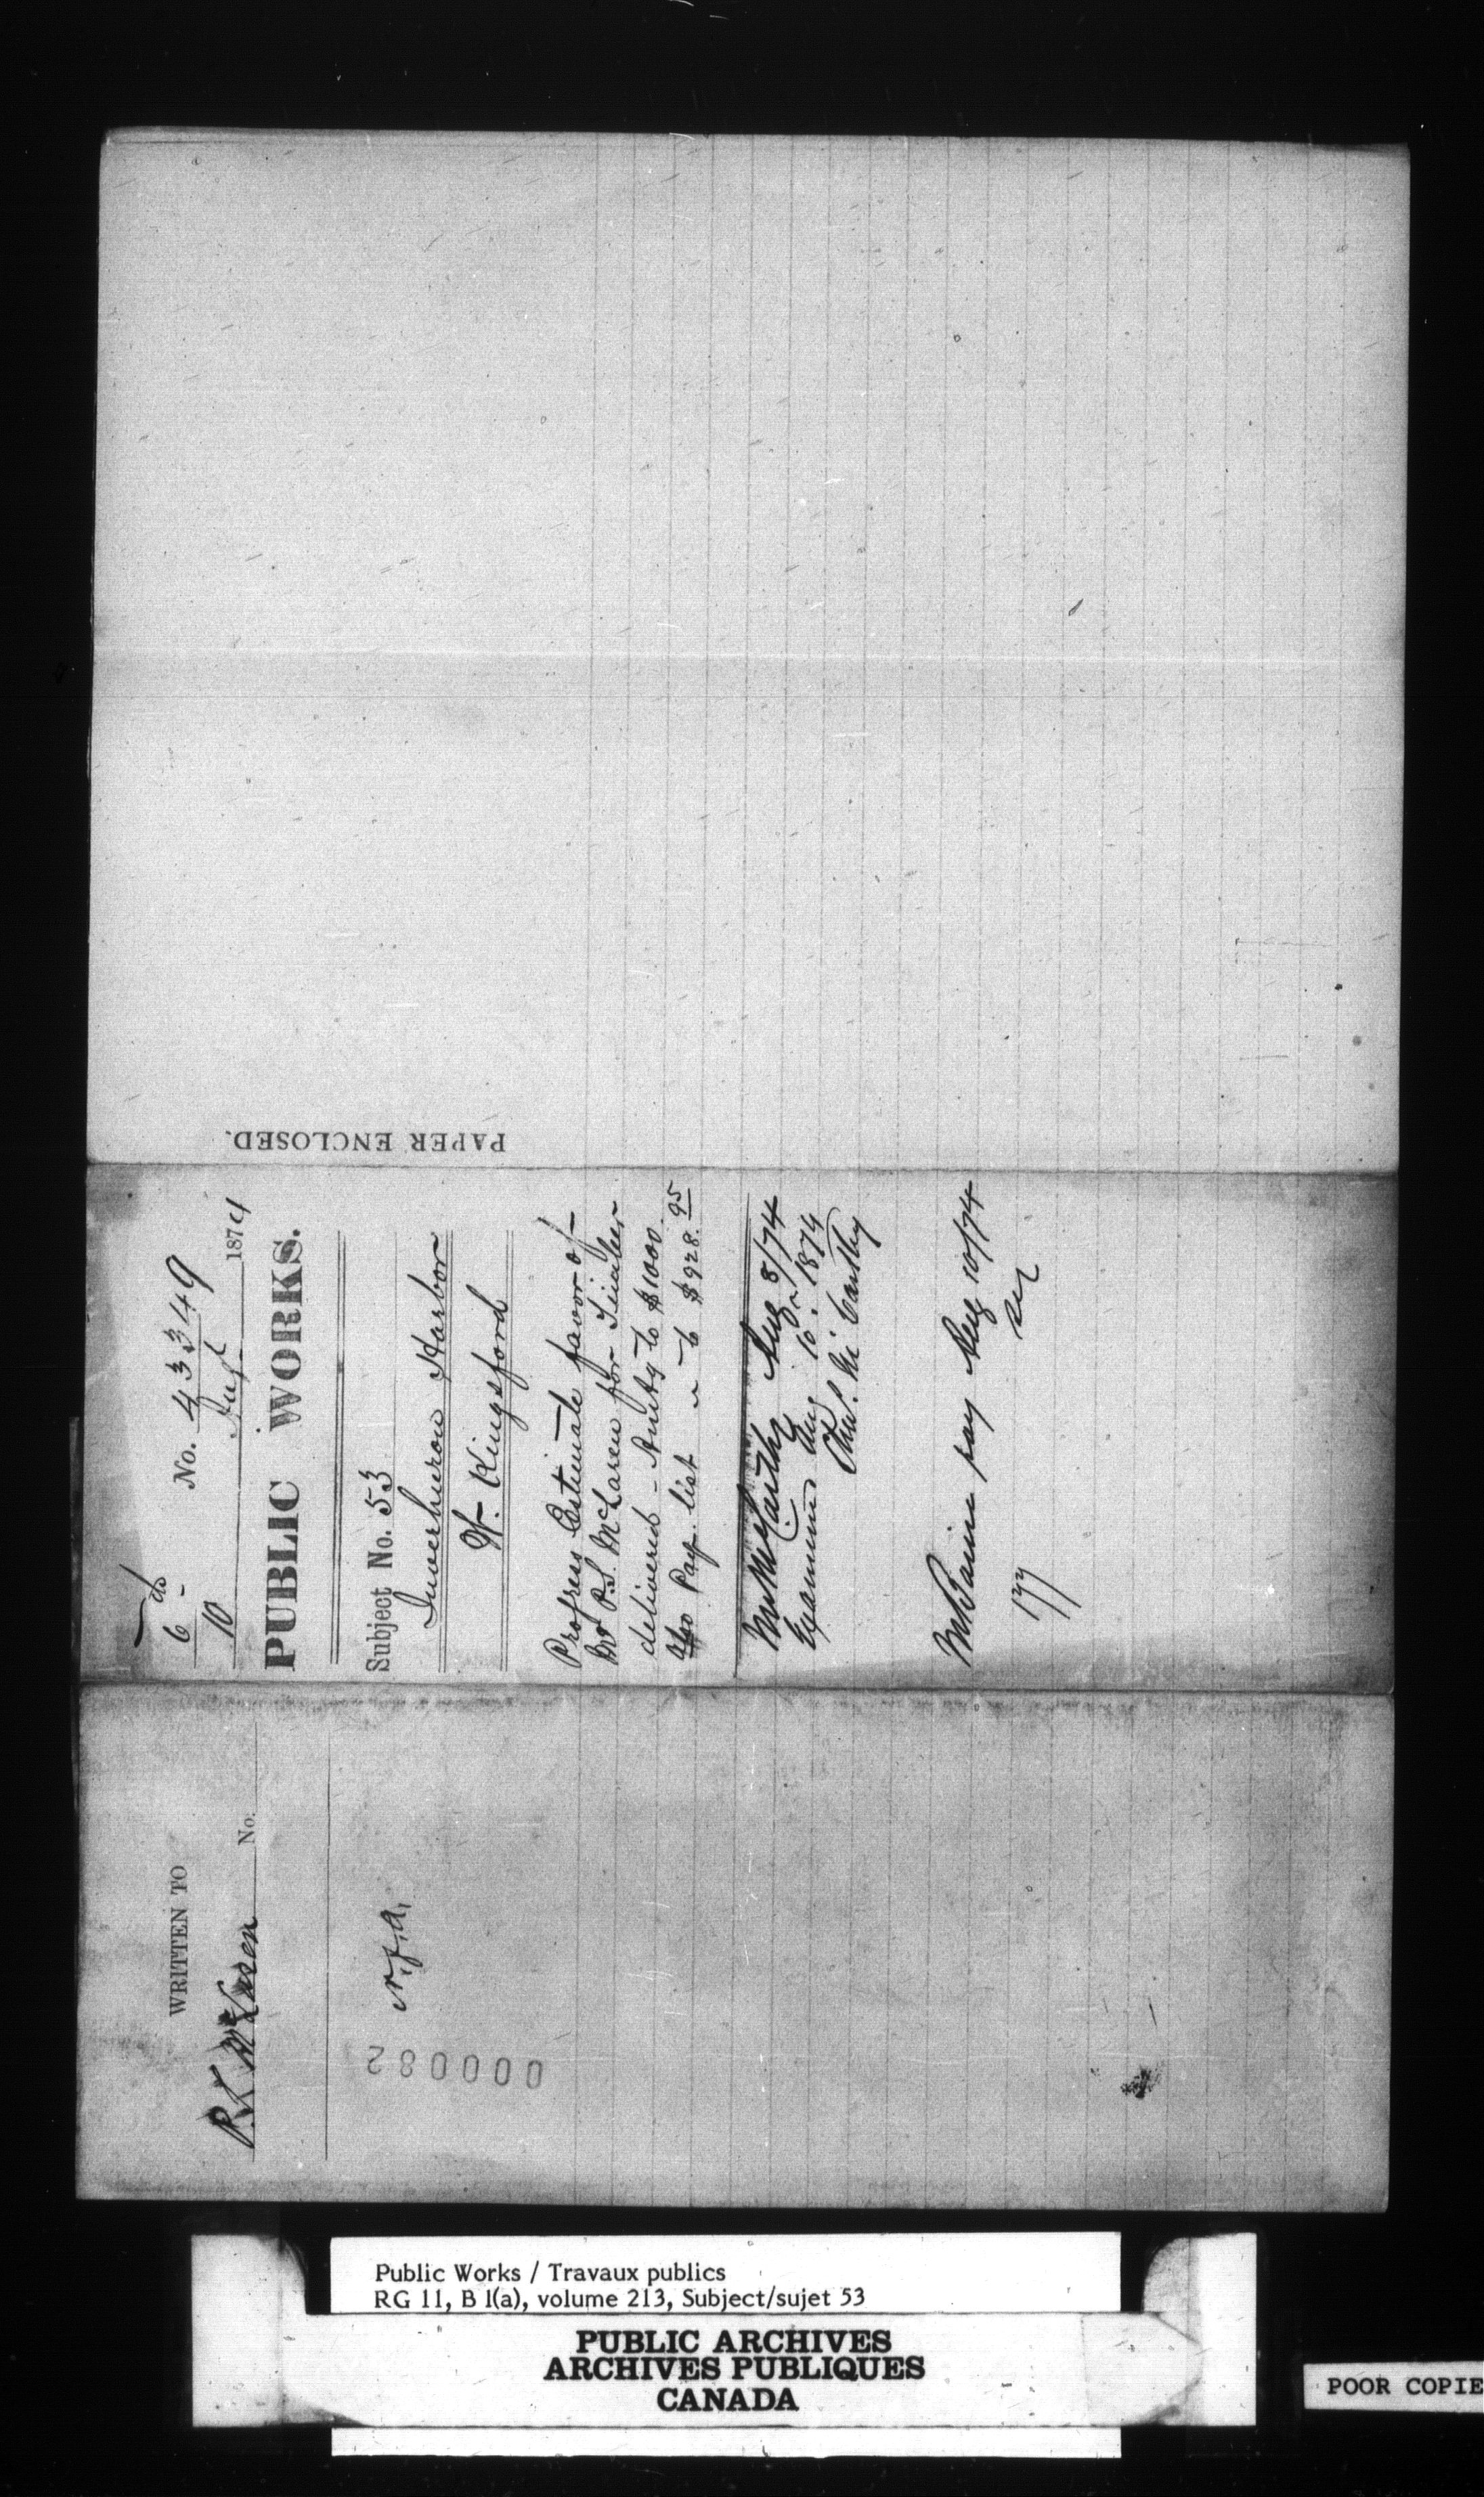 PAPER ENCLOSED.
6
10
No. 43349
Augt 1874
PUBLIC WORKS.
Subject No. 53
Inverhuron Harbor
W. Kingsford
Progress Estimate favor of
Mr P.S. McLaren for Timber
delivered - Amtg to $1000.
Also Pay list " to $928.95
Mr McCarthy Aug 8/74
Examined Aug 10. 1874
Chas. McCarthy
Mr Baine pay Aug 10/74
WRITTEN TO
McLaren No.
n.f.a.
000082
Public Works / Travaux publics
RG 11, B 1(a), volume 213, Subject/sujet 53
PUBLIC ARCHIVES
ARCHIVES PUBLIQUES
CANADA
POOR COPIE